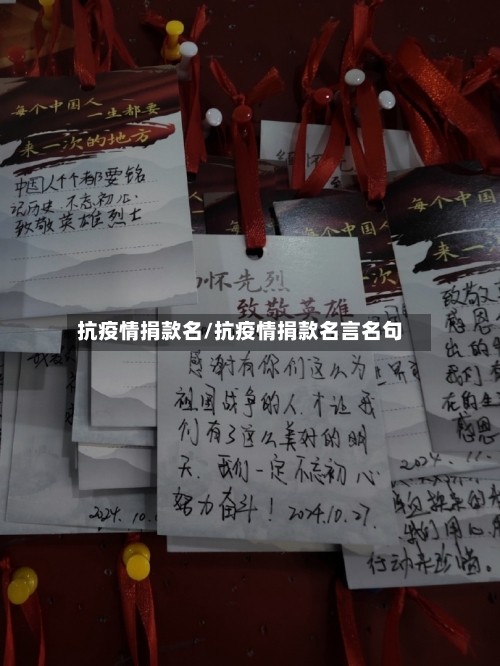 每个中国人
一生都要
来一次的地方
中国人个个都要铭
记历史,不忘初心.
致敬英雄烈士
缅怀先
怀先烈
致敬英雄
抗疫情捐款名/抗疫情捐款名言名句
感谢有你们这么为
祖国战争的人,才让我
们有了这么美好的明
天.我们一定不忘初心
努力奋斗! 2024.10.27.
2024.10.
每个中国
来一
致敬
感恩
出的
我们
在的生
感恩
2024.11.
换来的
我们用心,
行动来珍惜.